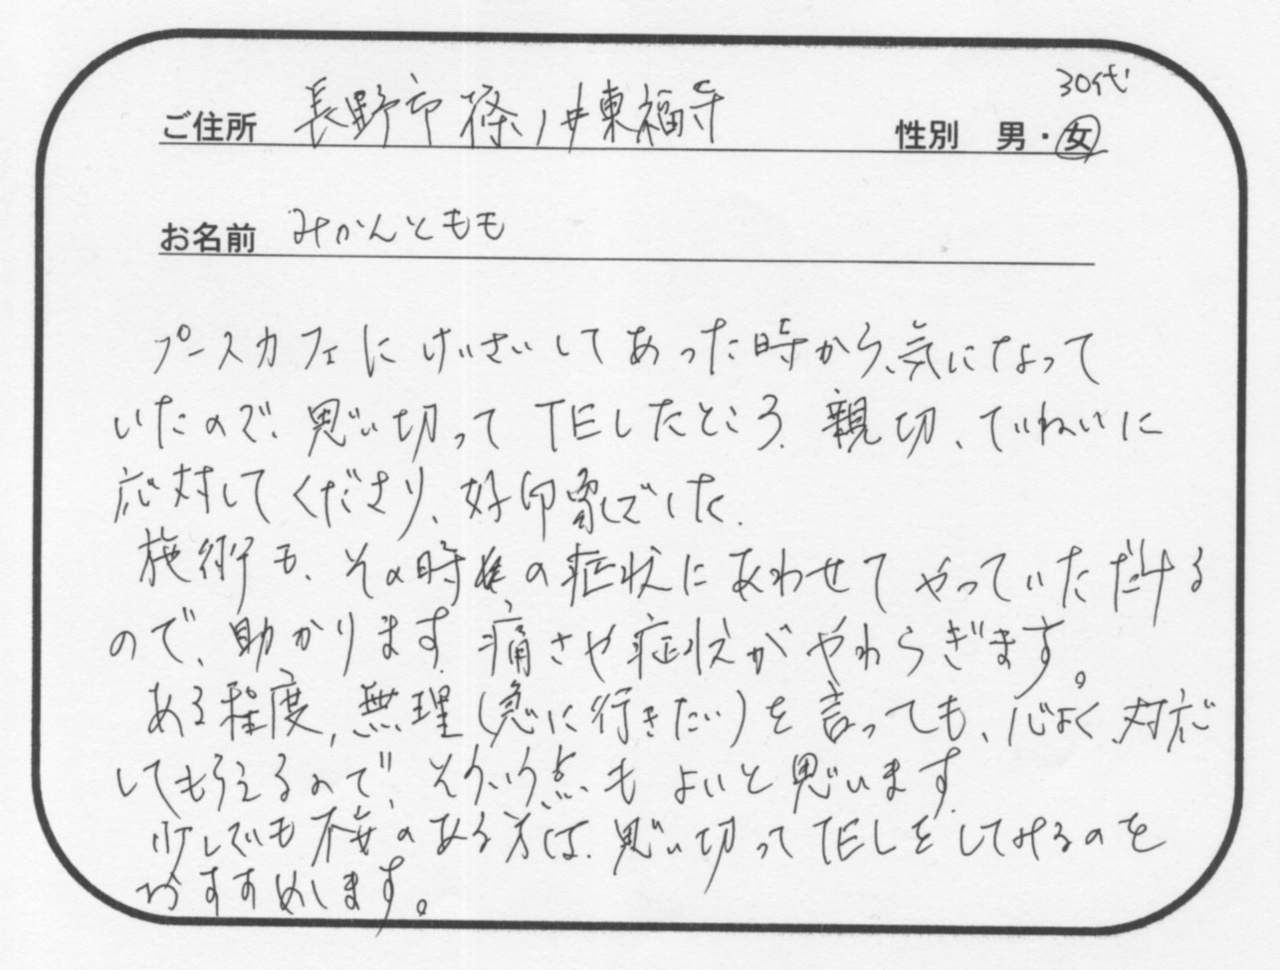 30代
ご住所 長野市篠ノ井東福寺 性別 男・女
お名前 みかんともも
プースカフェにけいさいしてあった時から、気になって
いたので、思い切ってTELしたところ、親切、ていねいに
応対してくださり、好印象でした。
施術も、その時々の症状にあわせてやっていただける
ので、助かります。痛さや症状がやわらぎます。
ある程度、無理(急に行きたい)を言っても、心よく対応
してもらえるので、そういう点もよいと思います。
少しでも不安のある方は、思い切ってTELをしてみるのを
おすすめします。